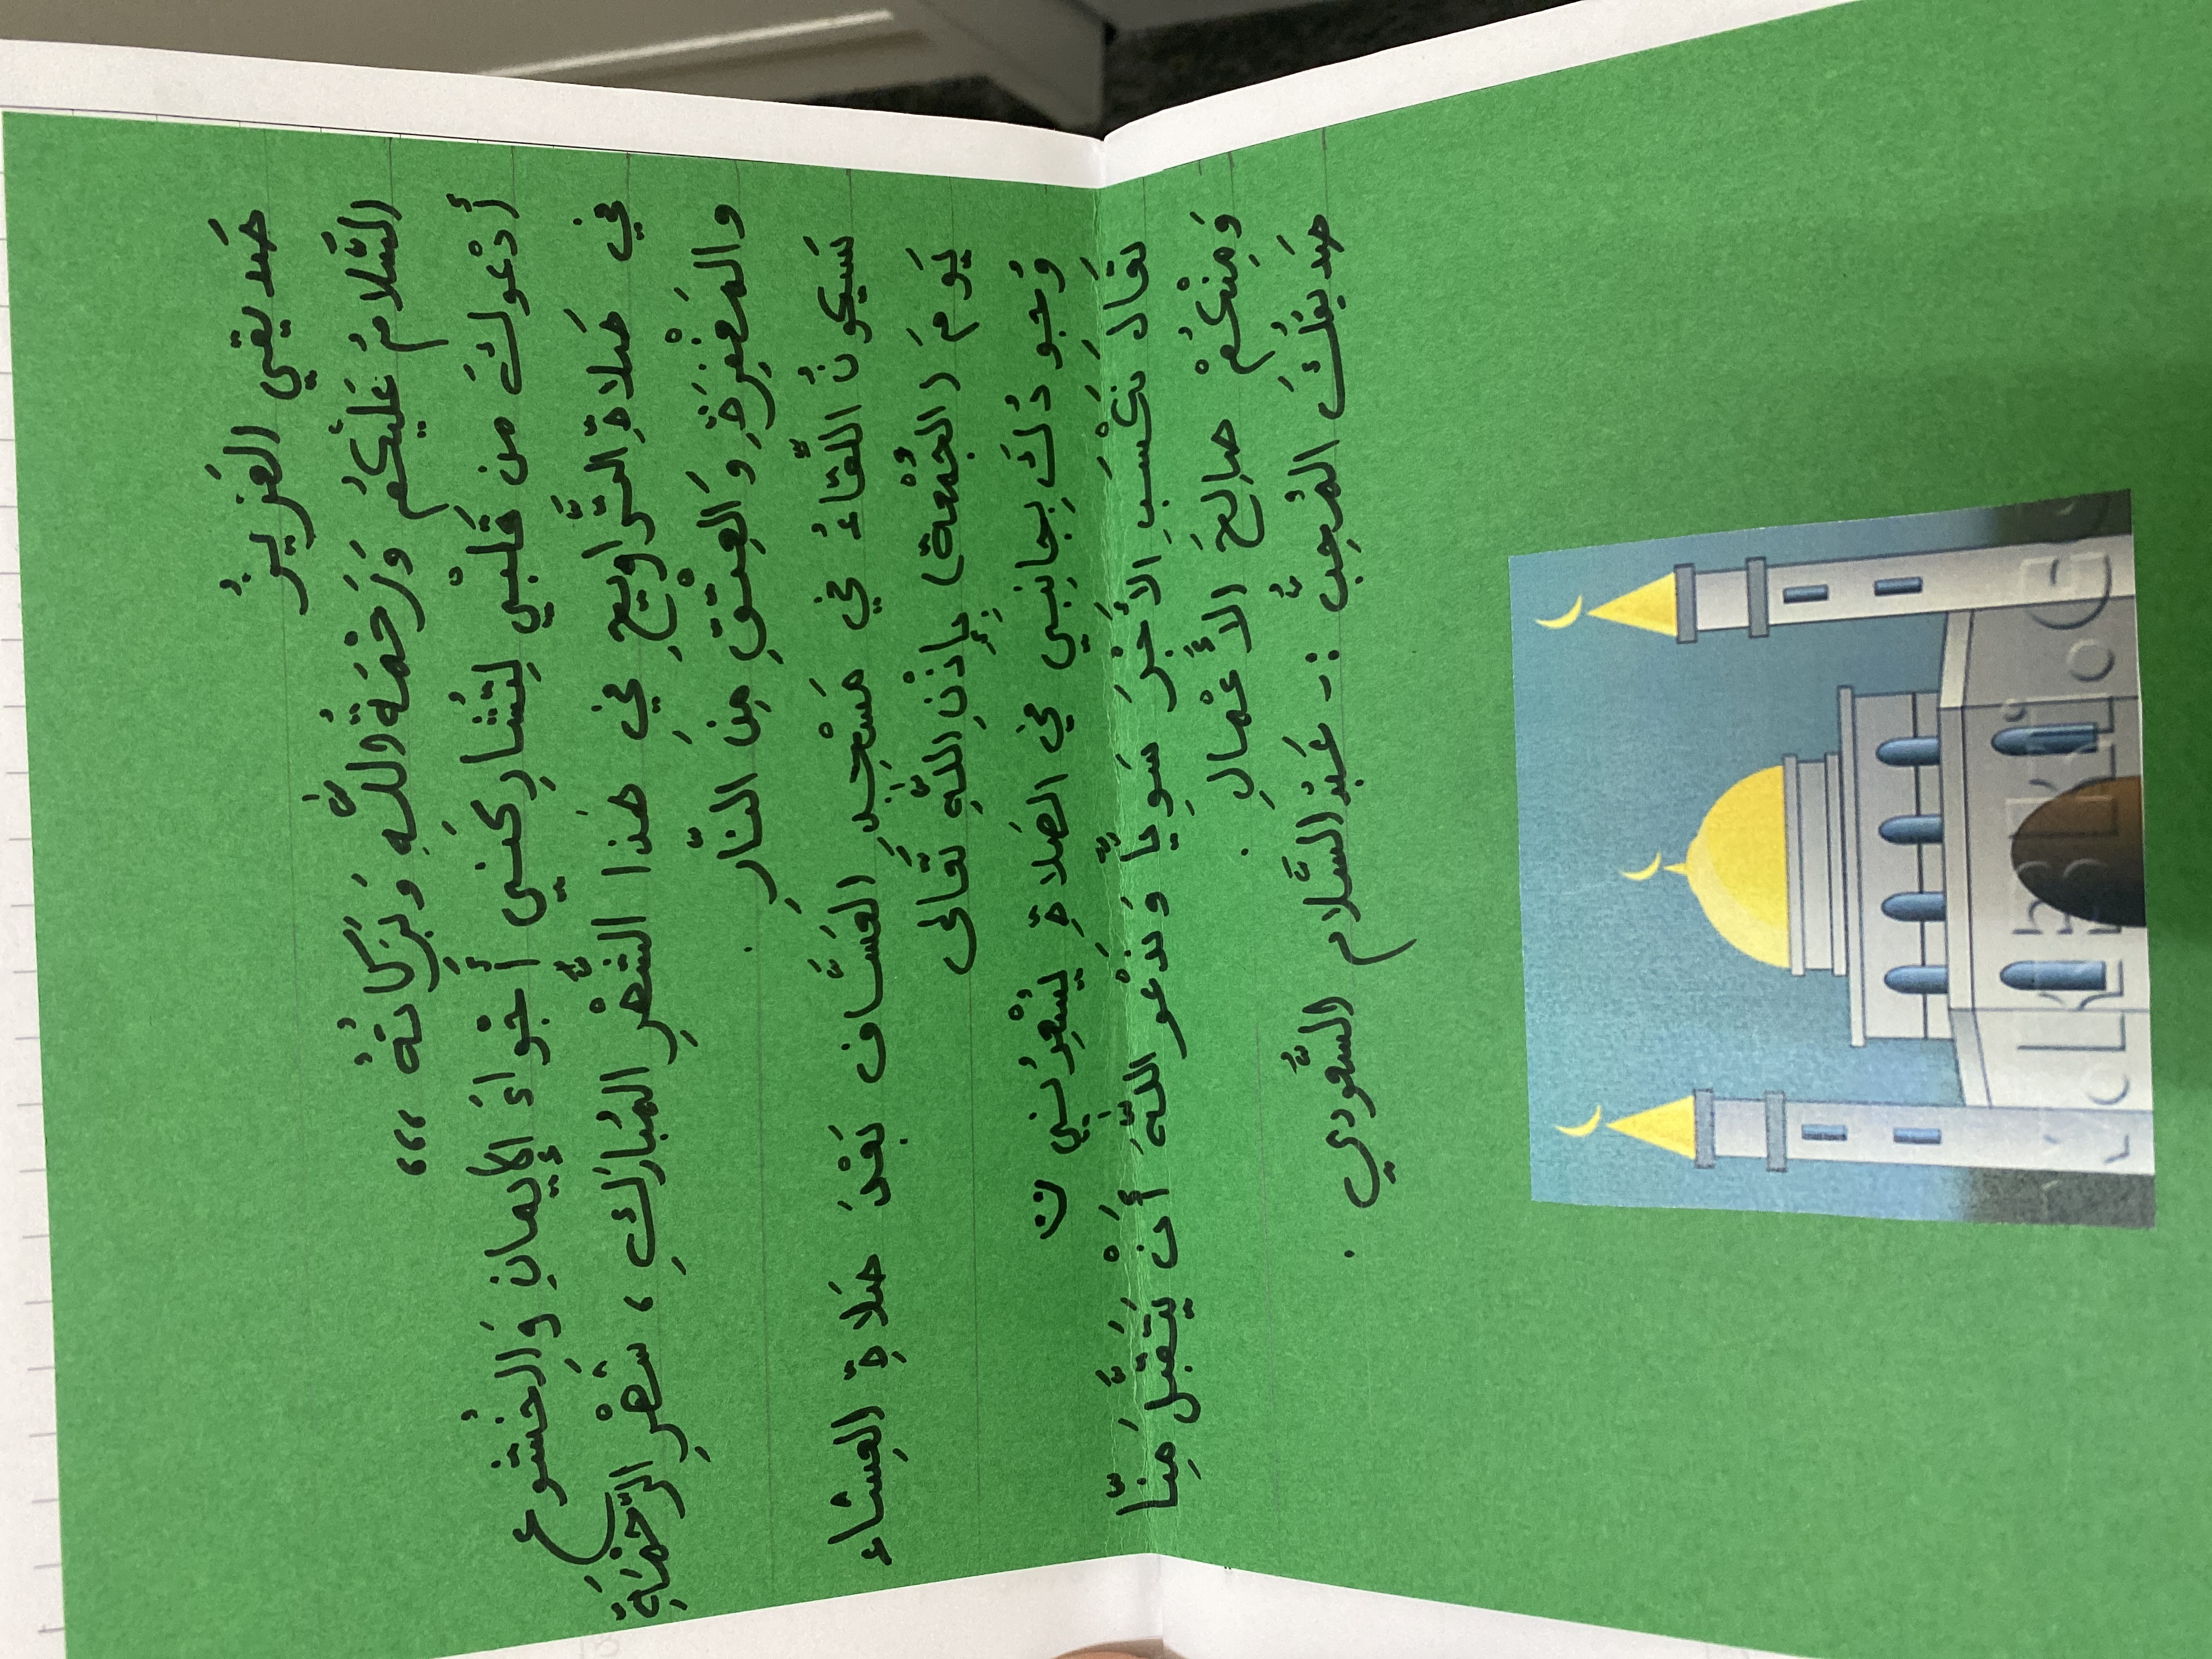 صَديقي العَزيزُ
السَّلامُ عَلَيْكُم وَرَحْمَةُ اللَّهِ وَبَرَكاتُهُ ،،،
أَدْعوكَ من قَلْبْي لِتُشارِكَني أَجْواءَ الإيمانِ وَالخُشوع
في صَلاةِ التَّراويحِ في هَذا الشَّهْرِ المُبارَكِ ، شَهْرِ الرَّحْمَةِ
والمَغْفِرَةِ وَالعِتْقِ مِنَ النّارِ .
سَيَكونُ اللّقاءُ في مَسْجِدِ العَسَّاف بَعْدَ صَلاةِ العِشاء
يَومَ (الجُمْعة) بِإِذْنِ اللَّهِ تَعَالى
وُجودُكَ بِجانِبي في الصَلاةِ يُسْعِدُني ن
تعَالَ نَكْسَبِ الأَجْرَ سَوِيًّا وَندْعو اللَّهَ أَنْ يَتَقبَّلَ مِنّا
وَمِنْكُمْ صالِحَ الأَعْمالِ .
صَديقُكَ المُحِبُّ :- عَبْدالسَّلام السُّعودي .